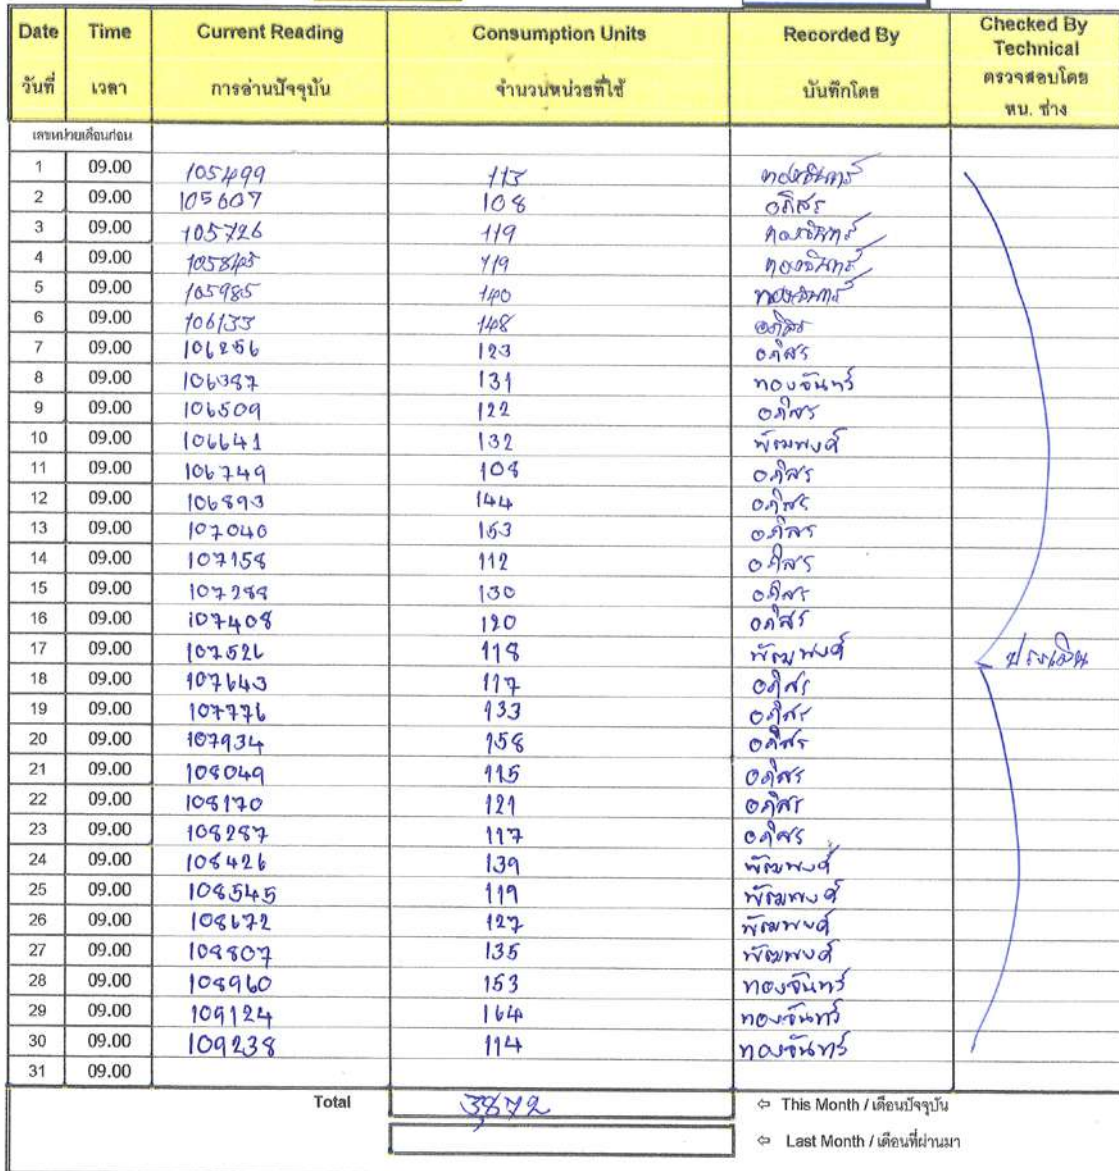 Date Time Current Reading Consumption Units Recorded By Checked By Technical
วันที่ เวลา การอ่านปัจจุบัน จำนวนหน่วยที่ใช้ บันทึกโดย ตรวจสอบโดย หน. ช่าง
เลขหน่วยเดือนก่อน
1 09.00 105499 113 ทองจันทร์
2 09.00 105607 108 อภิสร
3 09.00 105726 119 ทองจันทร์
4 09.00 105845 119 ทองจันทร์
5 09.00 105985 140 ทองจันทร์
6 09.00 106133 148 อภิสร
7 09.00 106256 123 อภิสร
8 09.00 106387 131 ทองจันทร์
9 09.00 106509 122 อภิสร
10 09.00 106641 132
11 09.00 106749 108 อภิสร
12 09.00 106893 144 อภิสร
13 09.00 107046 153 อภิสร
14 09.00 107158 112 อภิสร
15 09.00 107288 130 อภิสร
16 09.00 107408 120 อภิสร
17 09.00 107526 118
18 09.00 107643 117 อภิสร
19 09.00 107776 133 อภิสร
20 09.00 107934 158 อภิสร
21 09.00 108049 115 อภิสร
22 09.00 108170 121 อภิสร
23 09.00 108287 117 อภิสร
24 09.00 108426 139
25 09.00 108545 119
26 09.00 108672 127
27 09.00 108807 135
28 09.00 108960 153 ทองจันทร์
29 09.00 109124 164 ทองจันทร์
30 09.00 109238 114 ทองจันทร์
31 09.00
Total 3,872 ⇦ This Month / เดือนปัจจุบัน
⇦ Last Month / เดือนที่ผ่านมา